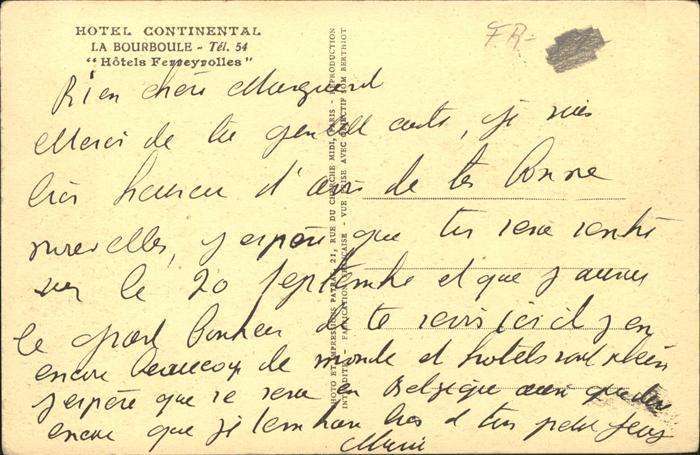 HOTEL CONTINENTAL
LA BOURBOULE - Tél. 54
"Hôtels Ferreyrolles"
FR-
Bien chère
Merci de ta carte, je suis
très heureux d'avoir de tes bonne
nouvelles, j'espère que tu sera rentré
sur le 20 septembre et que j'aurai
le grand bonheur de te revoir ici il y en
encore beaucoup de monde et hotels sont plein
j'espère que je serai en Belgique
encore que je
PHOTO ET IMPRESSIONS PATRAS, 21, RUE DU CHERCHE MIDI, PARIS - REPRODUCTION
INTERDITE - FABRICATION FRANÇAISE - VUE PRISE AVEC OBJECTIF SOM BERTHIOT